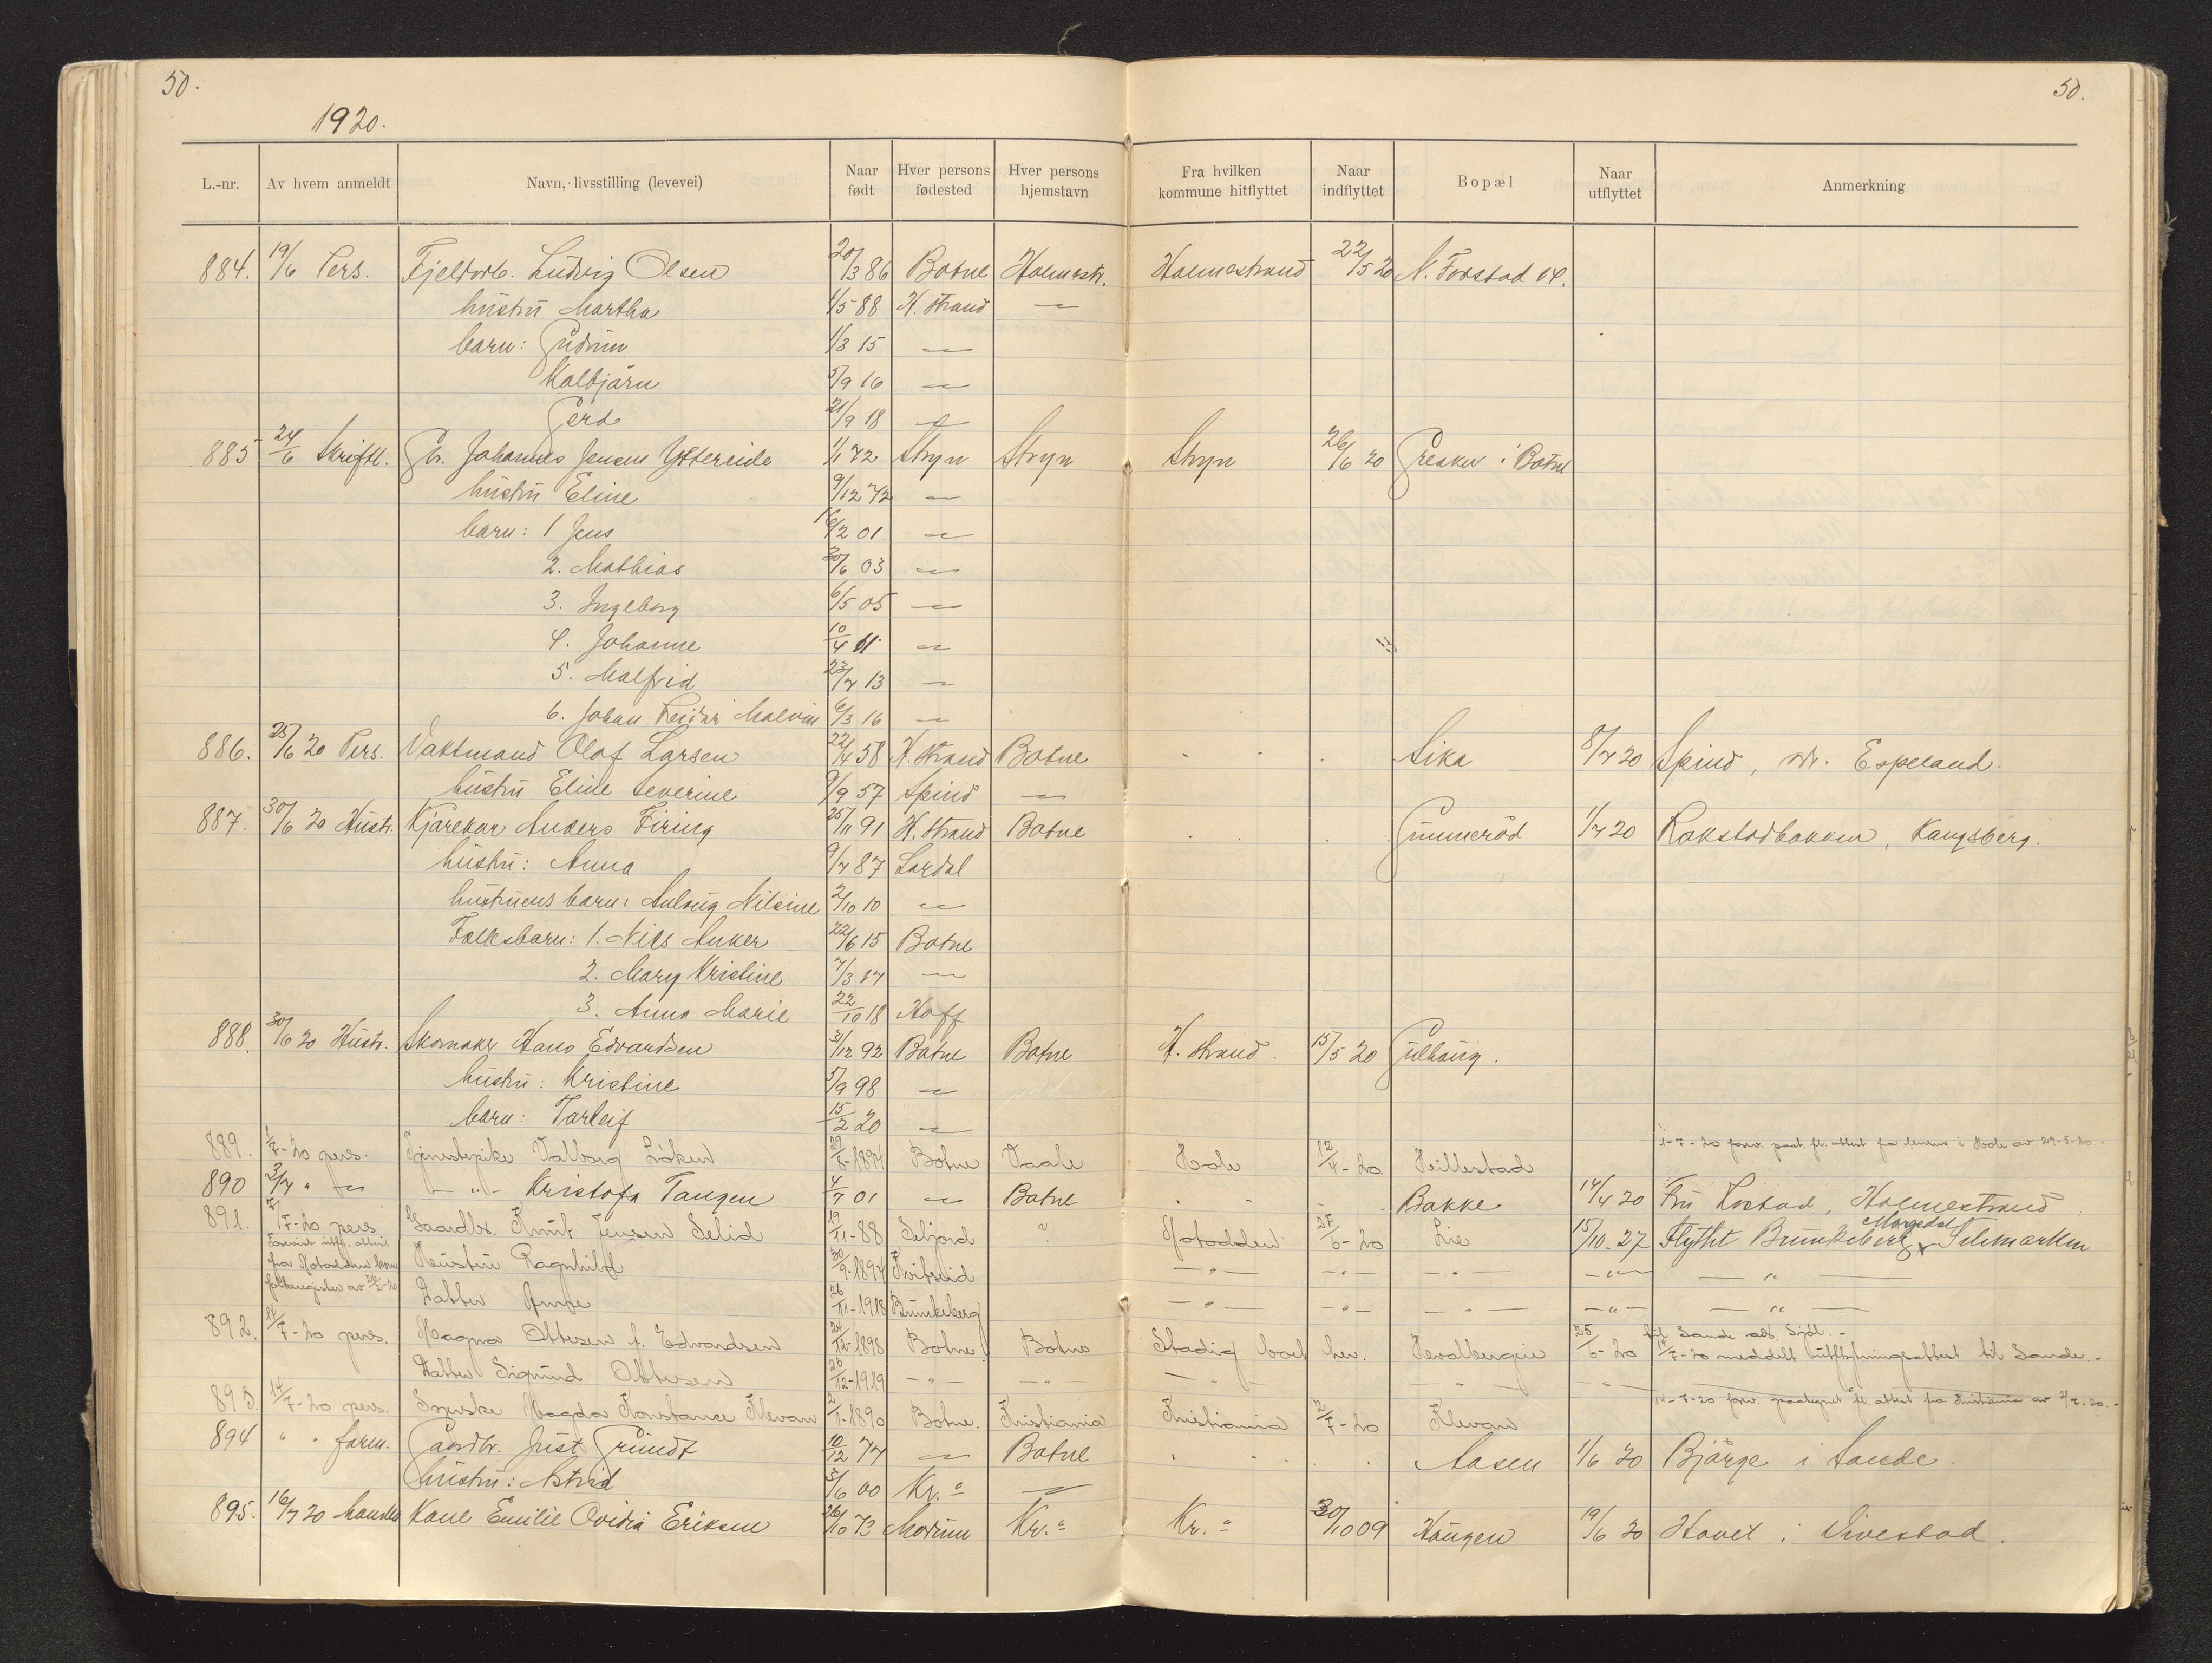 50. 50.
1920.
L.-nr. Av hvem anmeldt Navn, livsstilling (levevei) Naar født Hver persons fødested Hver persons hjemstavn Fra hvilken kommune hitflyttet Naar indflyttet Bopæl Naar utflyttet Anmerkning
884. 19/6 Pers. Fjeltarb. Ludvig Olsen 20/3 86 Botne Holmestr. Holmestrand 22/5 20 N. Forstad
hustru Martha 1/5 88 H. strand —"—
barn: Gudrun 1/3 15 —"—
Kolbjørn 5/9 16 —"—
Gerd 21/9 18 —"—
885 24/6 Skriftl. Gb. Johannes Jensen Yttereide 1/1 72 Stryn Stryn Stryn 26/6 20 Greaker i Botne
hustru Eline 9/12 72 —"—
barn: 1 Jens 16/2 01 —"—
2. Mathias 30/6 03 —"—
3. Ingeborg 6/5 05 —"—
4. Johanne 10/4 11 —"—
5. Malfrid 23/7 13 —"—
6. Johan Reidar Malvin 6/3 16 —"—
886. 25/6 20 Pers. Vaktmand Olaf Larsen 22/4 58 H. strand Botne Sika 8/7 20 Spind, Espeland.
hustru Eline Severine 9/9 57 Spind —"—
887. 30/6 20 Hustr. Kjørekar Anders Firing 25/11 91 H. strand Botne Gunnerød 1/7 20 Rakstadbakken, Kongsberg.
hustru: Anna 9/7 87 Lardal
hustruens barn: Aslaug Nilsine 2/10 10 —"—
Fællesbarn: 1. Nils Anker 22/6 15 Botne
2. Mary Kristine 7/3 17 —"—
3. Anna Marie 22/10 18 Hoff
888. 30/6 20 Hustr. Skomaker Hans Edvardsen 31/12 92 Botne Botne H. strand. 15/5 20 Gulhaug.
hustru: Kristine 5/9 98 —"—
barn: Torleif 15/2 20 —"—
889. 1/7-20 pers. Tjenestepike Valborg Løken 29/8-1894 Botne Vaale Hole 12/4-20 Hillestad 1-7-20 forev. paat. fl. attest fra lensm. i Hole av 29-5-20.-
890 3/7 " —"— —"— Kristofa Tangen 4/7 01 —"— Botne Bakke 14/4 20 Fru Rostad, Holmestrand
891. 7/7-20 pers. Gaardbr. Knut Jensen Selid 19/11-88 Seljord " Notodden 27/6-20 Lie 15/10-27 Flyttet Brunkeberg, Morgedal Telemarken
Forevist utfl. attest
fra Notodden kom. Hustru Ragnhild 30/9-1894 Kviteseid —"— —"— —"— —"— —"—
folkeregister av 26/5-20 Datter Anne 26/11-1918 Brunkeberg —"— —"— —"— —"— —"—
892. 14/7-20 pers. Magna Ottesen f. Edvardsen 24/12-1898 Botne Botne Stadig boet her. Revalbergeie 25/6-20 til Sande ads. Sjøl.-
14/7-20 meddelt utflytningsattest til Sande.-
Datter Sigrund Ottesen 25/12-1919 —"— —"— —"— —"— —"—
893. 14/7-20 pers. Syerske Magda Konstance Klevan 2/1-1890 Botne. Kristiania Kristiania 2/7-20 Klevan 14-7-20 forev. paategnet fl. attest fra Kristiania av 2/7-20.-
894 " " farm. Gaardbr. Just Grundt 10/12 77 —"— Botne Aasen 1/6 20 Bjørge i Sande.
hustru: Astrid 5/6 00 Kr.a —"—
895. 16/7 20 Kone Emilie Ovidia Eriksen 26/10 72 Modum Kr.a Kr.a 30/10 09 Haugen 19/6 20 Hovet i Vivestad.